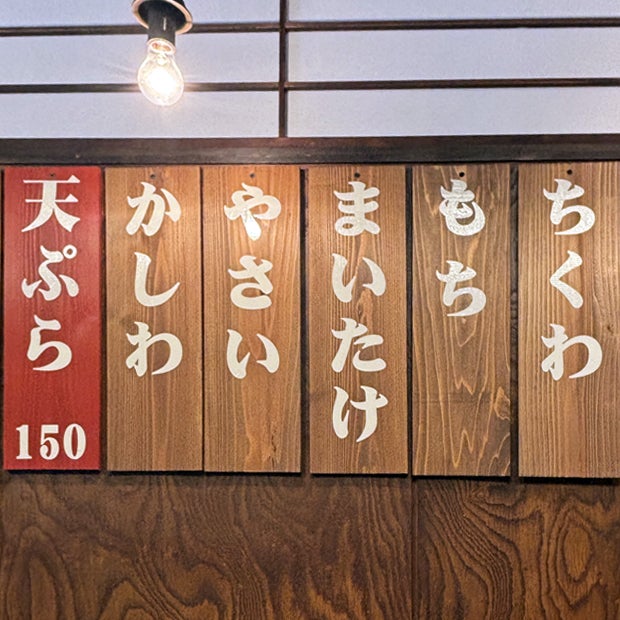 天ぷら
150
かしわ
やさい
まいたけ
もち
ちくわ